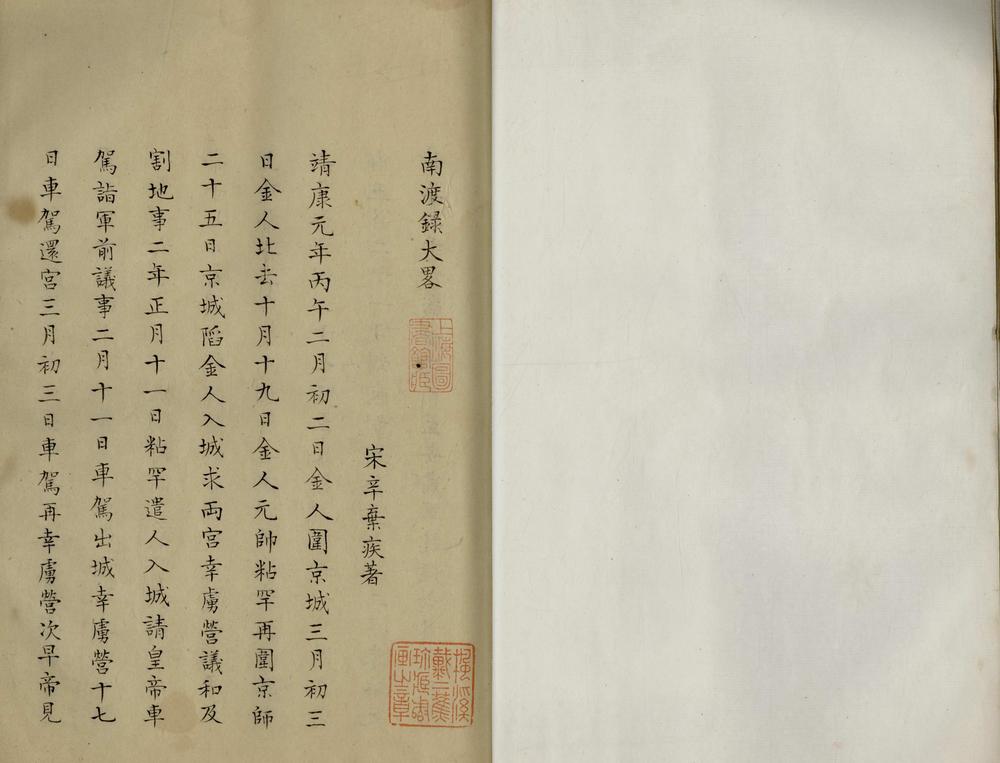 南渡錄大畧
上海圖書館藏
宋辛棄疾著
靖康元年丙午二月初二日金人圍京城三月初三
日金人北去十月十九日金人元帥粘罕再圍京師
二十五日京城陷金人入城求両宮幸虜營議和及
割地事二年正月十一日粘罕遣人入城請皇帝車
駕詣軍前議事二月十一日車駕出城幸虜營十七
日車駕還宮三月初三日車駕再幸虜營次早帝見